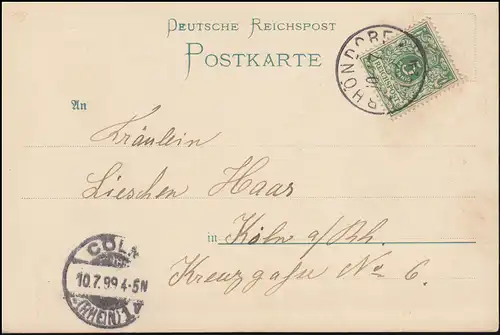 DEUTSCHE REICHSPOST
POSTKARTE
RHÖNDORF
An
Fräulein
Lieschen Haas
in Köln a/Rh.
Kreuzgasse No 6.
CÖLN
10.7.99 4-5N
(RHEIN) 1